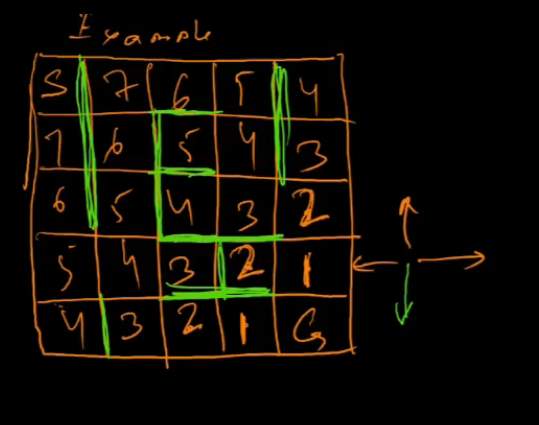 Example
S 7 6 5 4
7 6 5 4 3
6 5 4 3 2
5 4 3 2 1
4 3 2 1 G